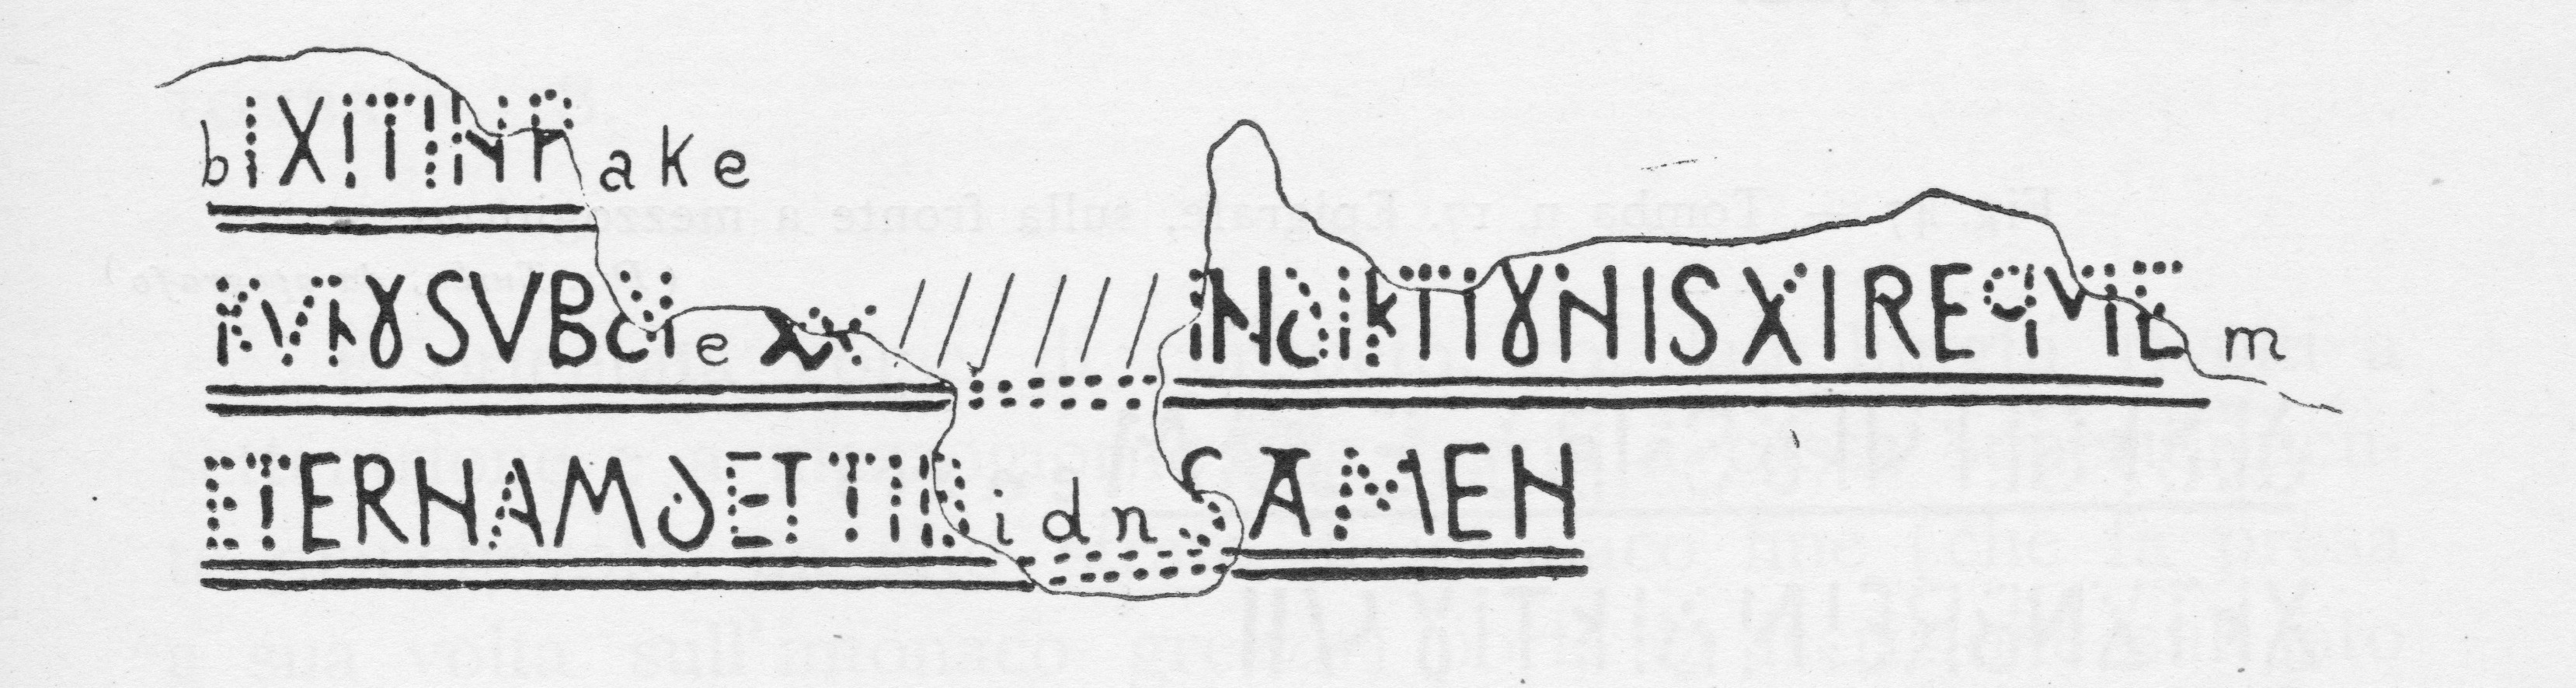 bIXITINPake
KVIȣSVBdIe XX ////// INdIKTIȣNIS XI REqVIEm
ETERHAM dET TIBidnS AMEH